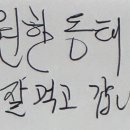 원할 동태
잘 먹고 갑니